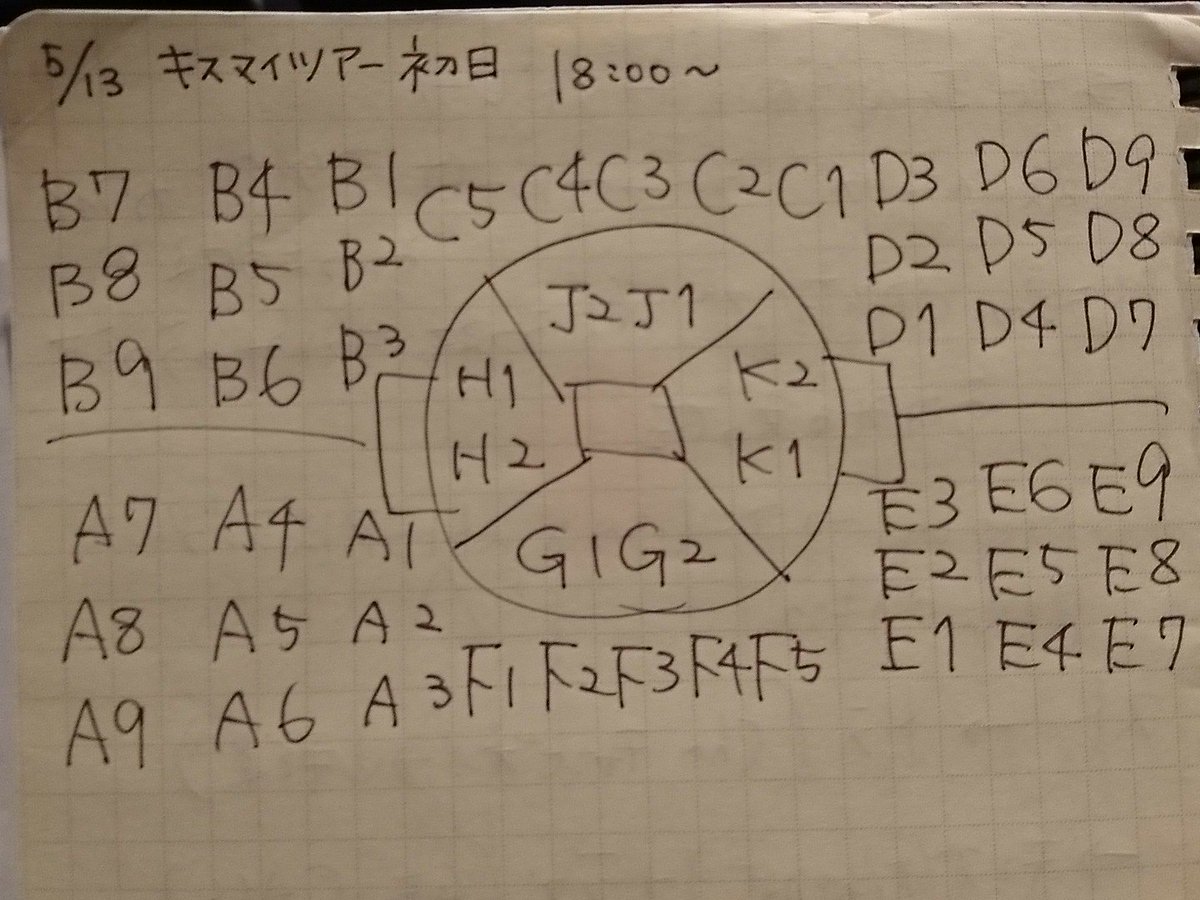 5/13 キスマイツアー初日 18:00～
B7 B4 B1 C5 C4 C3 C2 C1 D3 D6 D9
B8 B5 B2 J2 J1 D2 D5 D8
B9 B6 B3 H1 K2 D1 D4 D7
H2 K1
A7 A4 A1 G1 G2 E3 E6 E9
A8 A5 A2 E2 E5 E8
A9 A6 A3 F1 F2 F3 F4 F5 E1 E4 E7